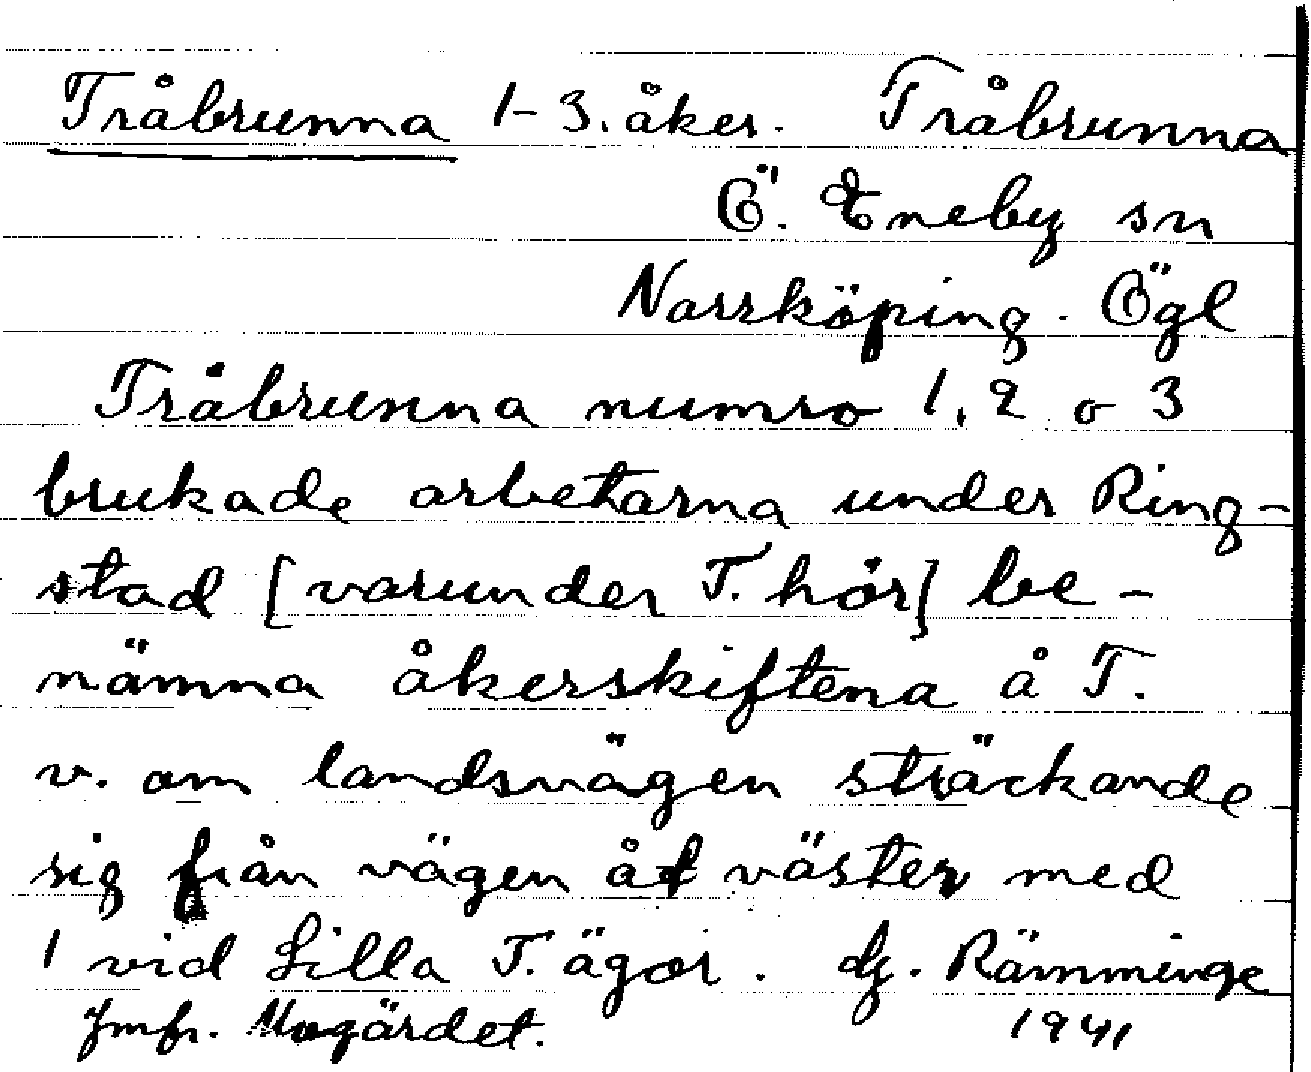 Tråbrunna 1-3. åker. Tråbrunna
Ö. Eneby sn
Norrköping. Ögl
Tråbrunna numro 1, 2 o 3
brukade arbetarna under Ring-
stad [varunder T. hör] be-
nämna åkerskiftena å T.
v. om landsvägen sträckande
sig från vägen åt väster med
1 vid Lilla T. ägor. Rämminge
Jmfr. 1941